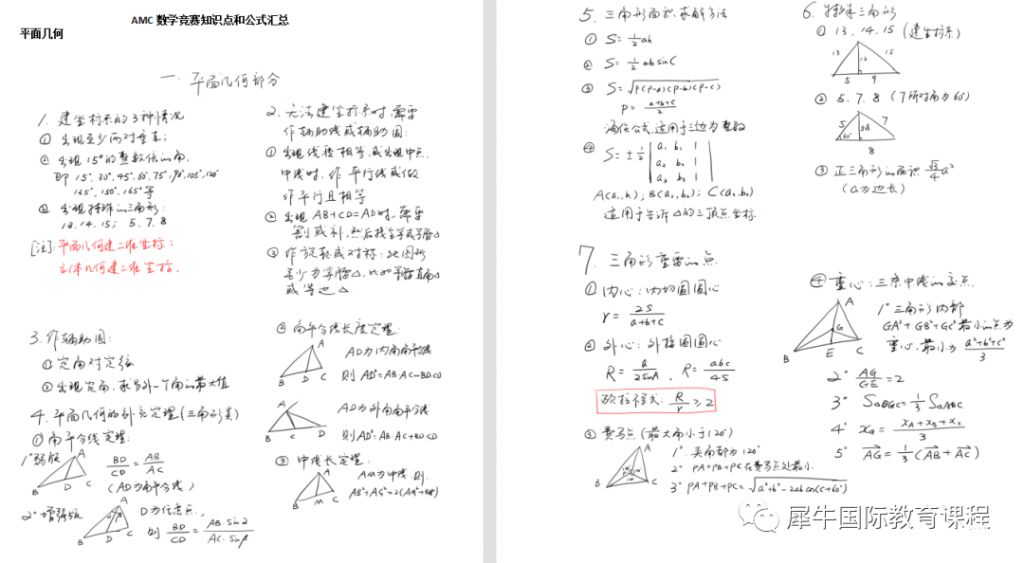 AMC 数学竞赛知识点和公式汇总
平面几何
一 平面几何部分
1. 建坐标系的3种情况
① 出现至少两对垂直;
② 出现15°的整数倍的角.
即 15°, 30°, 45°, 60°, 75°, 90°, 105°, 120°
135°, 150°, 165°等
③ 出现特殊的三角形:
13.14.15; 5.7.8
[注]: 平面几何建二维坐标;
立体几何建三维坐标.
2. 无法建坐标系时,需要
作辅助线或辅助圆:
① 出现线段相等,或出现中点,
中线时,作平行线或作
作平行且相等
② 出现 AB+CD=AD时,需要
割或补,然后找全等或等腰△
③ 作旋转或对称:此图形
至少为等腰△,比如等腰直角△
或等边△
3. 作辅助圆:
① 定角对定弦
② 出现定角,求另外一个角的最大值
4. 平面几何的补充定理(三角形类)
① 角平分线定理:
1° 弱版
A
B D C
BD/CD = AB/AC
(AD为角平分线)
2° 增强版
A
B D C
D为任意点,
则 BD/CD = AB·sinα/AC·sinβ
② 角平分线长度定理:
A
B D C
AD为内角角平分线
则 AD²=AB·AC-BD·CD
A
B C D
AD为外角角平分线
则AD²=-AB·AC+BD·CD
③ 中线长定理:
A
B M C
AM为中线 则
AB²+AC²=2(AM²+BM²)
5. 三角形面积求解方法
① S=½ah
② S=½absinC
③ S=√P(P-a)(P-b)(P-c)
P=(a+b+c)/2
海伦公式,适用于三边为整数
④ S=±½
a₁ b₁ 1
a₂ b₂ 1
a₃ b₃ 1
A(a₁,b₁); B(a₂,b₂); C(a₃,b₃)
适用于告诉△的三顶点坐标.
6. 特殊三角形
① 13.14.15 (建坐标系)
13 12 15
5 9
② 5.7.8 (7所对角为60°)
5 7
60°
8
③ 正三角形的面积 √3/4 a²
(a为边长)
7. 三角形重要的点
① 内心:内切圆圆心
r = 2S/(a+b+c)
② 外心:外接圆圆心
R = a/2sinA , R = abc/4S
欧拉不等式: R/r ≥ 2
③ 费马点(最大角小于120°)
A
B C
1° 夹角都为120°
2° PA+PB+PC在费马点处最小.
3° PA+PB+PC=√a²+b²-2abcos(C+60°)
④ 重心:三条中线的交点
A
G
B E C
1° 三角形内部
GA²+GB²+GC²最小的点为
重心,最小为 (a²+b²+c²)/3
2° AG/GE=2
3° S△BGC=⅓S△ABC
4° xG=(xA+xB+xC)/3
5° AG=⅓(AB+AC)
犀牛国际教育课程